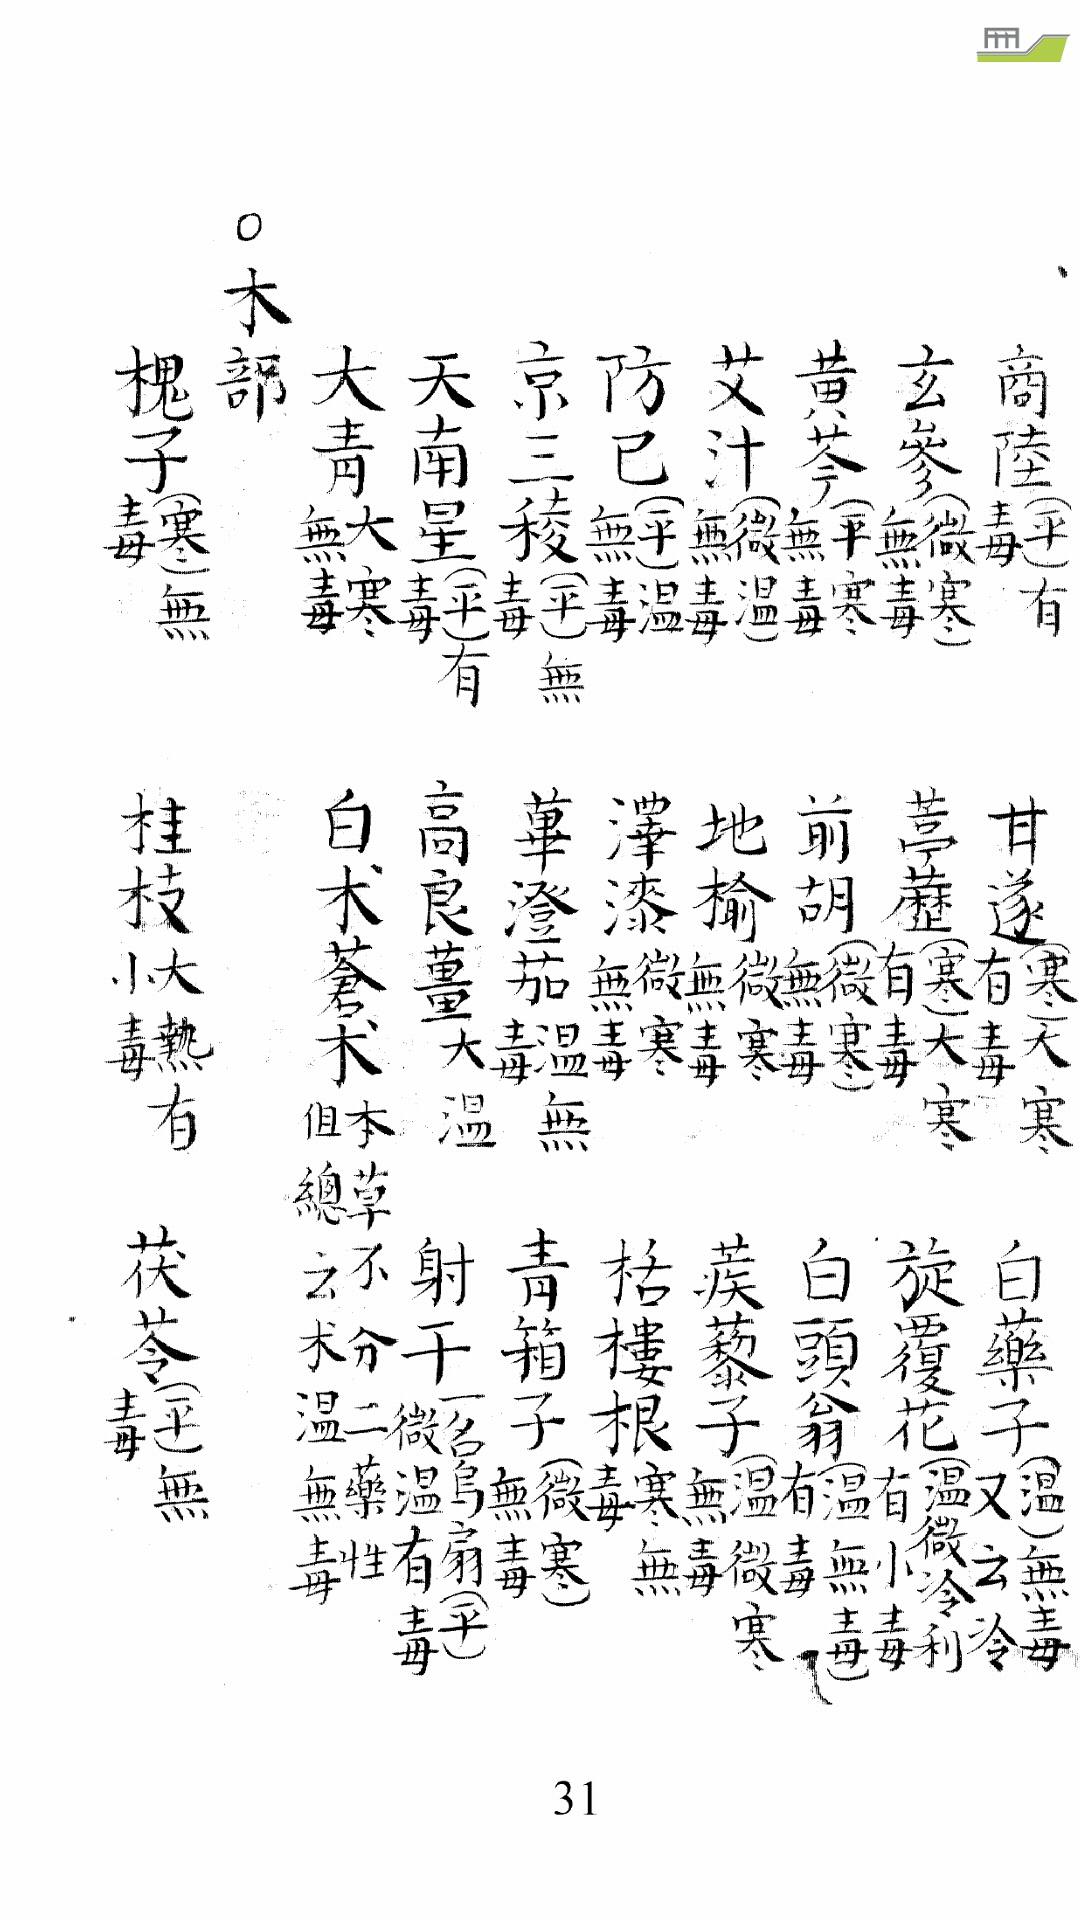 商陸（平）有毒　甘遂（寒）大寒有毒　白藥子（温）無毒又云冷
玄參（微寒）無毒　葶藶（寒）大寒有毒　旋覆花（温）微冷利有小毒
黄芩（平）寒無毒　前胡（微寒）無毒　白頭翁（温無毒）有毒
艾汁（微温）無毒　地榆微寒無毒　蒺藜子（温）微寒無毒
防已（平）温無毒　澤漆微寒無毒　栝樓根寒無毒
京三稜（平）無毒　蓽澄茄温無毒　青箱子（微寒）無毒
天南星（平）有毒　高良薑大温　射干一名烏扇（平）微温有毒
大青大寒無毒　白术蒼术本草不分二藥性但總云术温無毒
○木部
槐子（寒）無毒　桂枝大熱有小毒　茯苓（平）無毒
31